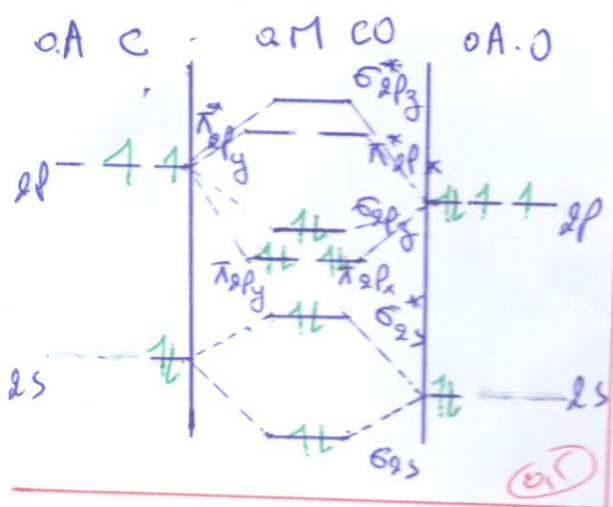 O.A C O.M CO O.A.O
σ*2pz
π*2py π*2px
2p 2p
σ2pz
π2py π2px
σ*2s
2s 2s
σ2s
0,5